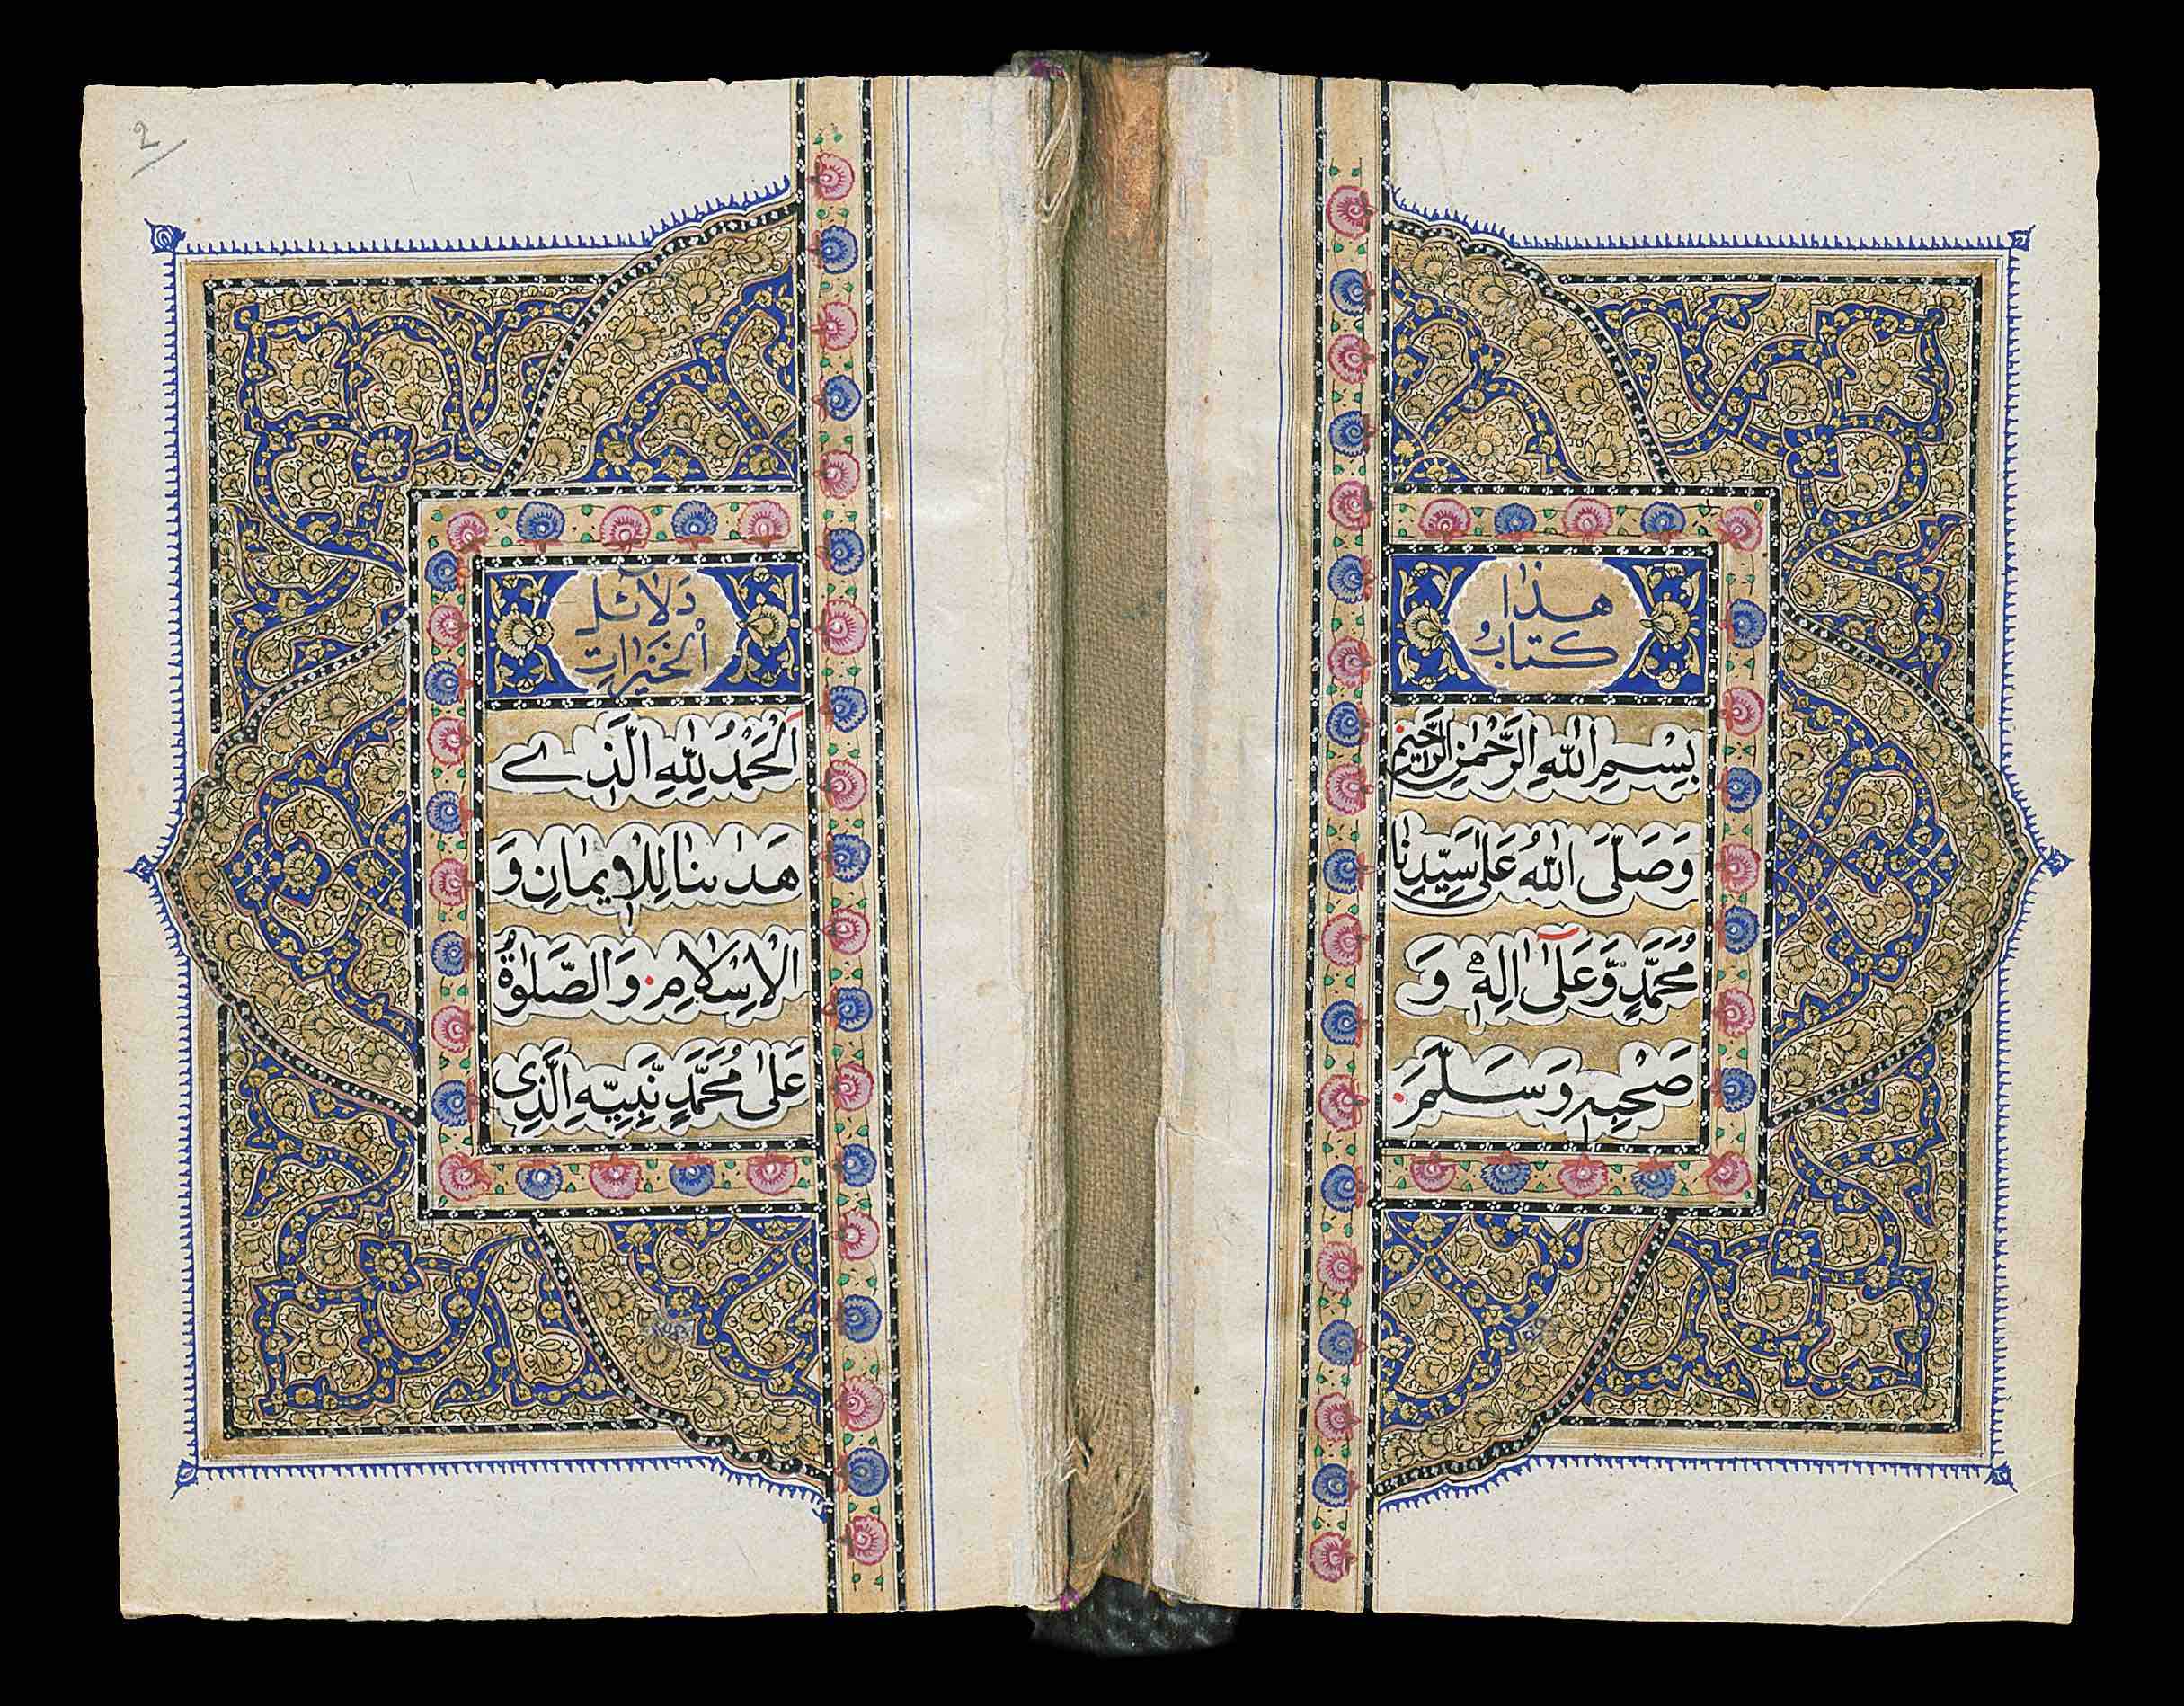 هٰذَا
كتابُ
بِسْمِ اللّٰهِ الرَّحْمٰنِ الرَّحِيْمِ
وَصَلَّى اللّٰهُ عَلٰى سَيِّدِنَا
مُحَمَّدٍ وَّعَلٰٓى اٰلِهٖ وَ
صَحْبِهٖ وَسَلَّمَ
2
دَلَائِل
الْخَيْرَاتِ
اَلْحَمْدُ لِلّٰهِ الَّذِے
هَدٰىنَا لِلْاِيمَانِ وَ
الْاِسْلَامِ وَالصَّلٰوةُ
عَلٰى مُحَمَّدٍ نَّبِيِّهِ الَّذِى